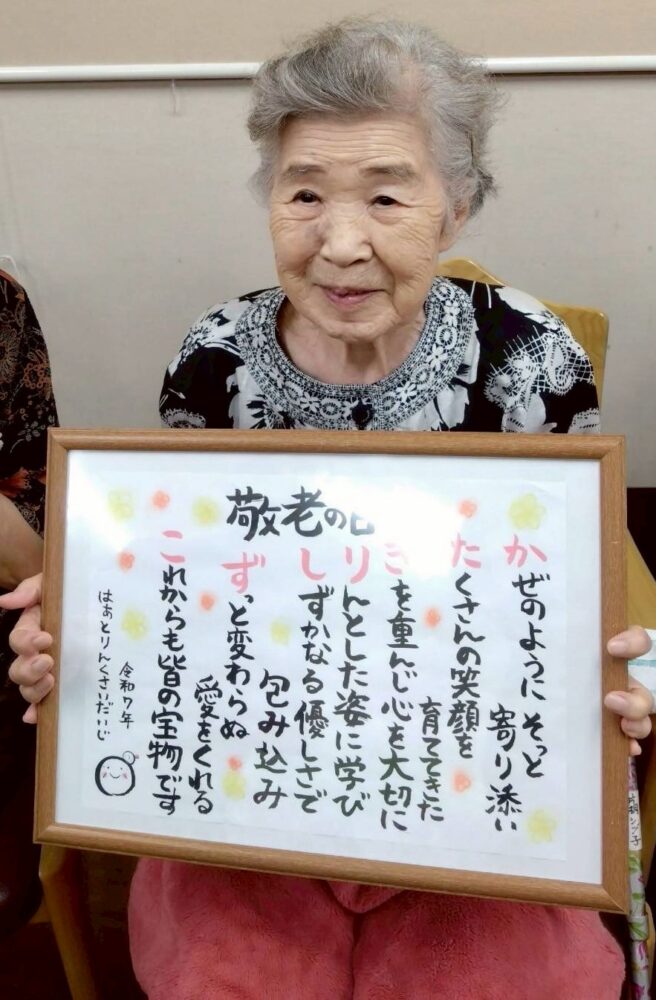 敬老の日
かぜのように そっと
寄り添い
たくさんの笑顔を
育ててきた
を重んじ心を大切に
りんとした姿に学び
しずかなる優しさで
包み込み
ずっと変わらぬ
愛をくれる
これからも皆の宝物です
令和7年
はあとりんくさいだいじ